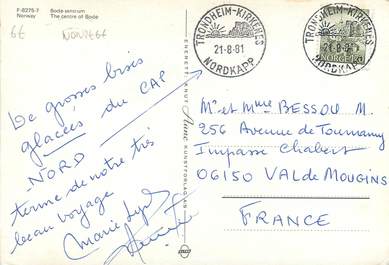 F-8275-7 Bodø sentrum
Norway The centre of Bodø
6€ NORVEGE
TRONDHEIM-KIRKENES
21-8-81
NORDKAPP
TRONDHEIM-KIRKENES
21-8-81
NORDKAPP
NORGE
ENERETT: KNUT Aune KUNSTFORLAG
De grosses bises
glacées du CAP
NORD
terme de notre très
beau voyage
Marie
Mr et Mme BESSOU M.
256 Avenue de Tournamy
Impasse Chabert
06150 VAL de MOUGINS
FRANCE